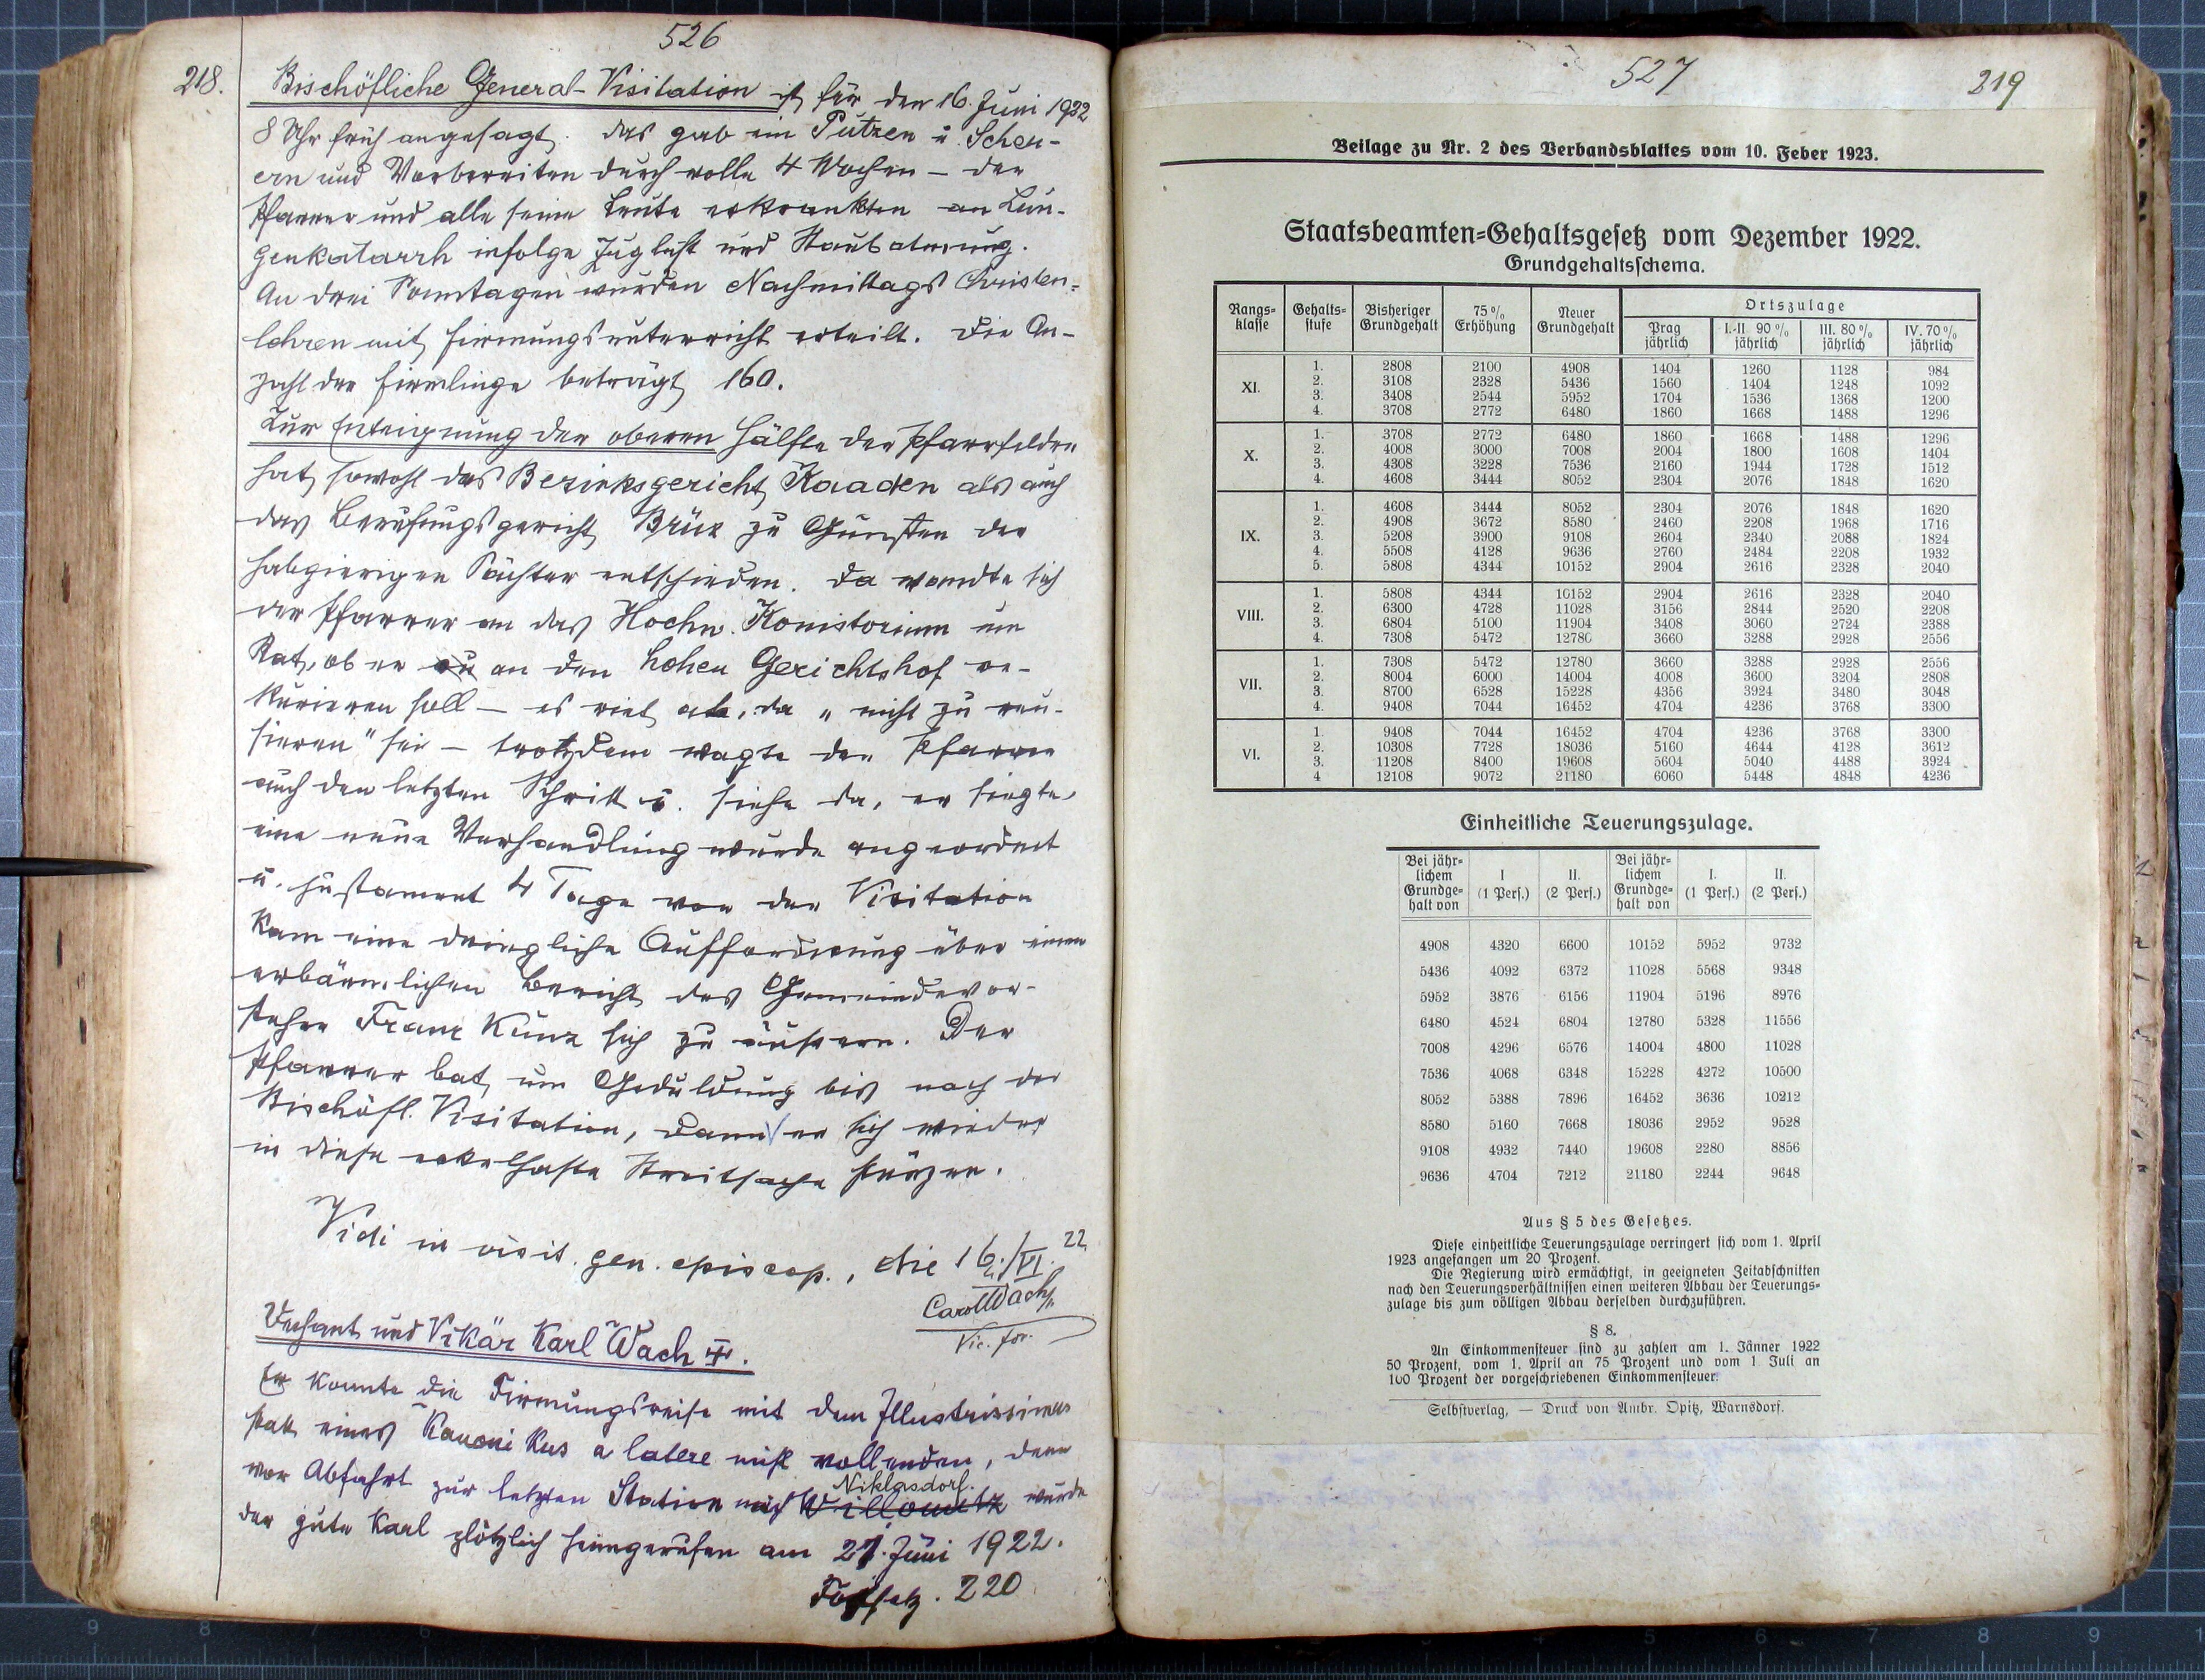 526
218.
Bischöfliche General-Visitation ist für den 16. Juni 1922
8 Uhr früh angesagt. Das gab ein Putzen u. Scheu-
ern und Vorbereiten durch volle 4 Wochen – der
Pfarrer und alle seine Leute erkrankten an Lun-
genkatarrh infolge Zugluft und Staubatmung.
An drei Sonntagen wurden Nachmittags Christen-
lehren mit Firmungsunterricht erteilt. Die An-
zahl der Firmlinge beträgt 160.
Zur Enteignung der oberen Hälfte der Pfarrfelder
hat sowohl das Bezirksgericht Kaaden als auch
das Berufungsgericht Brüx zu Gunsten der
habgierigen Pächter entschieden. Da wandte sich
der Pfarrer an das Hochw. Konistorium um
Rat, ob er an den hohen Gerichtshof re-
kurieren soll – es riet ab, da „nicht zu reu-
sieren" sei – trotzdem wagte der Pfarrer
auch den letzten Schritt u. siehe da, er siegte,
eine neue Verhandlung wurde angeordnet
u. justament 4 Tage vor der Visitation
kam eine dringliche Aufforderung über einen
erbärmlichen Bericht des Gemeindevor-
stehers Franz Kunz sich zu äußern. Der
Pfarrer bat um Geduldung bis nach der
Bischöfl. Visitation, dann er sich wieder
in diese ekelhafte Streitsache stürzen.
Vidi in visit. gen. episcop., die 16./VI. 22
Carol Wach
Vic. for.
Dechant und Vikär Karl Wach †.
Er konnte die Firmungsreise mit dem Illustrissimus
statt eines Kanonikus a latere nicht vollenden, denn
vor Abfahrt zur letzten Station nach Willomitz Niklasdorf. wurde
der gute Karl plötzlich heimgerufen am 21. Juni 1922.
Fortsetz. 220
527
219
Beilage zu Nr. 2 des Verbandsblattes vom 10. Feber 1923.
Staatsbeamten-Gehaltsgesetz vom Dezember 1922.
Grundgehaltsschema.
Rangs-klasse Gehalts-stufe Bisheriger Grundgehalt 75% Erhöhung Neuer Grundgehalt Ortszulage
Prag jährlich I.-II. 90% jährlich III. 80% jährlich IV. 70% jährlich
XI.
1. 2808 2100 4908 1404 1260 1128 984
2. 3108 2328 5436 1560 1404 1248 1092
3. 3408 2544 5952 1704 1536 1368 1200
4. 3708 2772 6480 1860 1668 1488 1296
X.
1. 3708 2772 6480 1860 1668 1488 1296
2. 4008 3000 7008 2004 1800 1608 1404
3. 4308 3228 7536 2160 1944 1728 1512
4. 4608 3444 8052 2304 2076 1848 1620
IX.
1. 4608 3444 8052 2304 2076 1848 1620
2. 4908 3672 8580 2460 2208 1968 1716
3. 5208 3900 9108 2604 2340 2088 1824
4. 5508 4128 9636 2760 2484 2208 1932
5. 5808 4344 10152 2904 2616 2328 2040
VIII.
1. 5808 4344 10152 2904 2616 2328 2040
2. 6300 4728 11028 3156 2844 2520 2208
3. 6804 5100 11904 3408 3060 2724 2388
4. 7308 5472 12780 3660 3288 2928 2556
VII.
1. 7308 5472 12780 3660 3288 2928 2556
2. 8004 6000 14004 4008 3600 3204 2808
3. 8700 6528 15228 4356 3924 3480 3048
4. 9408 7044 16452 4704 4236 3768 3300
VI.
1. 9408 7044 16452 4704 4236 3768 3300
2. 10308 7728 18036 5160 4644 4128 3612
3. 11208 8400 19608 5604 5040 4488 3924
4 12108 9072 21180 6060 5448 4848 4236
Einheitliche Teuerungszulage.
Bei jähr-lichem Grundge-halt von I (1 Pers.) II. (2 Pers.) Bei jähr-lichem Grundge-halt von I. (1 Pers.) II. (2 Pers.)
4908 4320 6600 10152 5952 9732
5436 4092 6372 11028 5568 9348
5952 3876 6156 11904 5196 8976
6480 4524 6804 12780 5328 11556
7008 4296 6576 14004 4800 11028
7536 4068 6348 15228 4272 10500
8052 5388 7896 16452 3636 10212
8580 5160 7668 18036 2952 9528
9108 4932 7440 19608 2280 8856
9636 4704 7212 21180 2244 9648
Aus § 5 des Gesetzes.
Diese einheitliche Teuerungszulage verringert sich vom 1. April
1923 angefangen um 20 Prozent.
Die Regierung wird ermächtigt, in geeigneten Zeitabschnitten
nach den Teuerungsverhältnissen einen weiteren Abbau der Teuerungs-
zulage bis zum völligen Abbau derselben durchzuführen.
§ 8.
An Einkommensteuer sind zu zahlen am 1. Jänner 1922
50 Prozent, vom 1. April an 75 Prozent und vom 1. Juli an
100 Prozent der vorgeschriebenen Einkommensteuer.
Selbstverlag, — Druck von Ambr. Opitz, Warnsdorf.